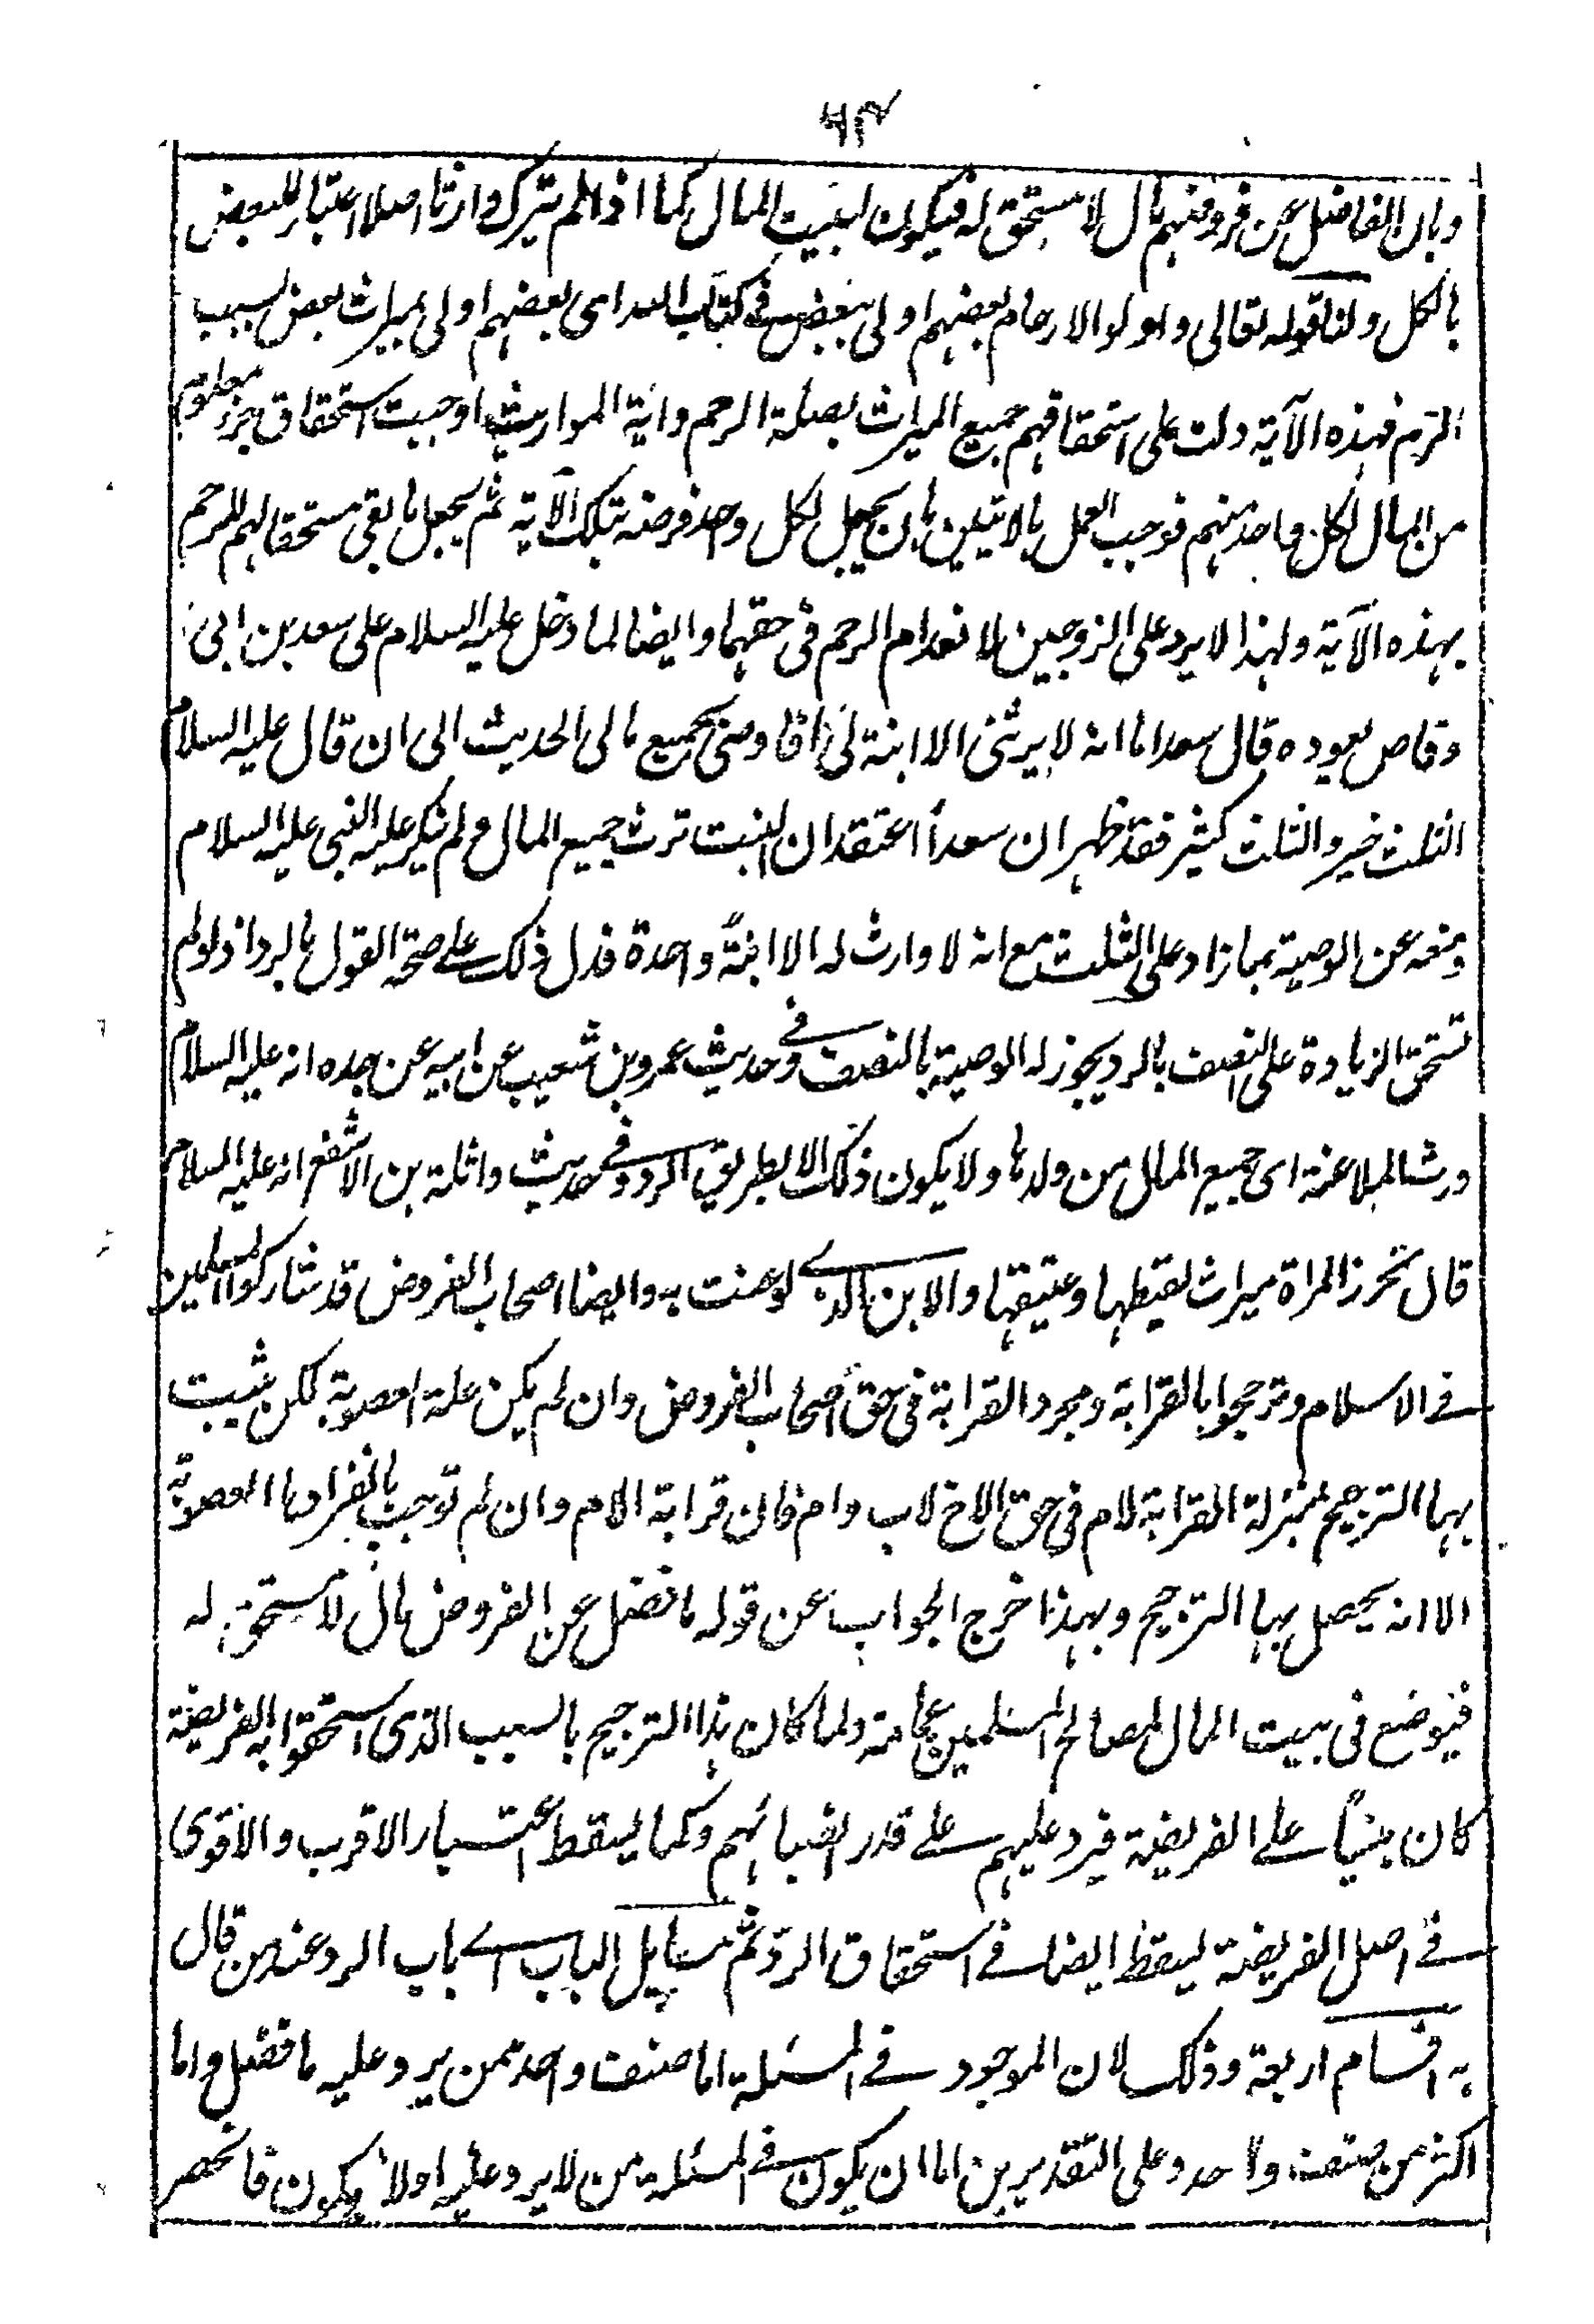 ٦٣
وبان الفاضل عن فروضهم مال لا مستحق له فيكون لبيت المال كما اذا لم يترك وارثا اصلا اعتبارا للبعض
بالكل ولنا قوله تعالى واولوا الارحام بعضهم اولى ببعض في كتاب الله اى بعضهم اولى بميراث بعض بسبب
الرحم فهذه الآية دلت على استحقاقهم جميع الميراث بصلة الرحم واية المواريث اوجبت استحقاق جزء معلوم
من المال لكل واحد منهم فوجب العمل بالآيتين بان يجعل لكل واحد فرضه بتلك الآية ثم يجعل ما بقى مستحقا لهم للرحم
بهذه الآية ولهذا لا يرد على الزوجين لانعدام الرحم فى حقهما وايضا لما دخل عليه السلام على سعد بن ابى
وقاص يعوده قال سعد اما انه لا يرثنى الا ابنة لى افاوصى بجميع مالى الحديث الى ان قال عليه السلام
الثلث خير والثلث كثير فقد ظهر ان سعدا اعتقد ان البنت ترث جميع المال ولم ينكر عليه النبى عليه السلام
ومنعه عن الوصية بمازاد على الثلث مع انه لا وارث له الا ابنةٌ واحدة فدل ذلك على صحة القول بالرد اذ لو لم
تستحق الزيادة على النصف بالرد يجوز له الوصية بالنصف وفى حديث عمرو بن شعيب عن ابيه عن جده انه عليه السلام
ورث الملاعنة اى جميع المال من ولدها ولا يكون ذلك الا بطريق الرد وفى حديث واثلة بن الاشقع انه عليه السلام
قال تحرز المراة ميراث لقيطها وعتيقها والابن الذى لوعنت به وايضا اصحاب الفروض قد شاركوا المسلمين
فى الاسلام وترجحوا بالقرابة ومجرد القرابة فى حق اصحاب الفروض وان لم يكن علة العصوبة لكن يثبت
بها الترجيح بمنزلة القرابة لام فى حق الاخ لاب وام فان قرابة الام وان لم توجب بانفرادها العصوبة
الا انه يحصل بها الترجيح وبهذا خرج الجواب عن قوله ما فضل عن الفروض مال لا مستحق له
فيوضع فى بيت المال لمصالح المسلمين عامة ولما كان هذا الترجيح بالسبب الذى استحقوا به الفريضة
كان مبنياً على الفريضة فيرد عليهم على قدر انصبائهم وكما يسقط اعتبار الاقرب والاقوى
فى اصل الفريضة يسقط ايضا فى استحقاق الرد ثم مسايل الباب اى باب الرد عند من قال
به اقسام اربعة وذلك لان الموجود فى المسئلة اما صنف واحد ممن يرد عليه ما فضل واما
اكثر من صنف واحد وعلى التقديرين اما ان يكون فى المسئلة من لا يرد عليه اولا يكون فانحصر